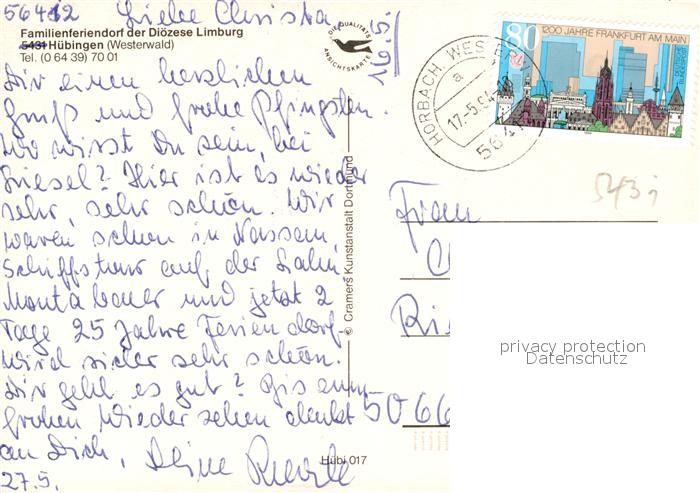 56412 Liebe Christa, 16.5.
Familienferiendorf der Diözese Limburg
5431 Hübingen (Westerwald)
Tel. (0 64 39) 70 01
DIE QUALITÄTS ANSICHTSKARTE
Dir einen herzlichen
Gruß und frohe Pfingsten.
Wo wirst Du sein, bei
Liesel? Hier ist es wieder
sehr, sehr schön. Wir
waren schon in Nassau,
Schiffstour auf der Lahn
Montabaur und jetzt 2
Tage 25 Jahre Feriendorf
Wird sicher sehr schön.
Dir geht es gut? Bis zum
frohen Wiedersehen denkt
an Dich, Deine
27.5.
Hübi 017
© Cramers Kunstanstalt Dortmund
HORBACH, WESTERW
a
17.-5.94
5641
80
1200 JAHRE FRANKFURT AM MAIN
DEUTSCHE BUNDESPOST
Frau
C
Ri
5066
privacy protection
Datenschutz